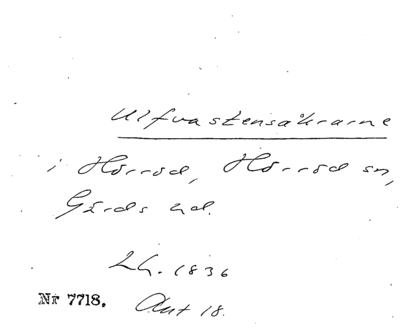 Ulfvastensåkrarne
i Hörröd, Hörröd sn,
Gärds hd.
Lh. 1836
Nr 7718. Akt 18.